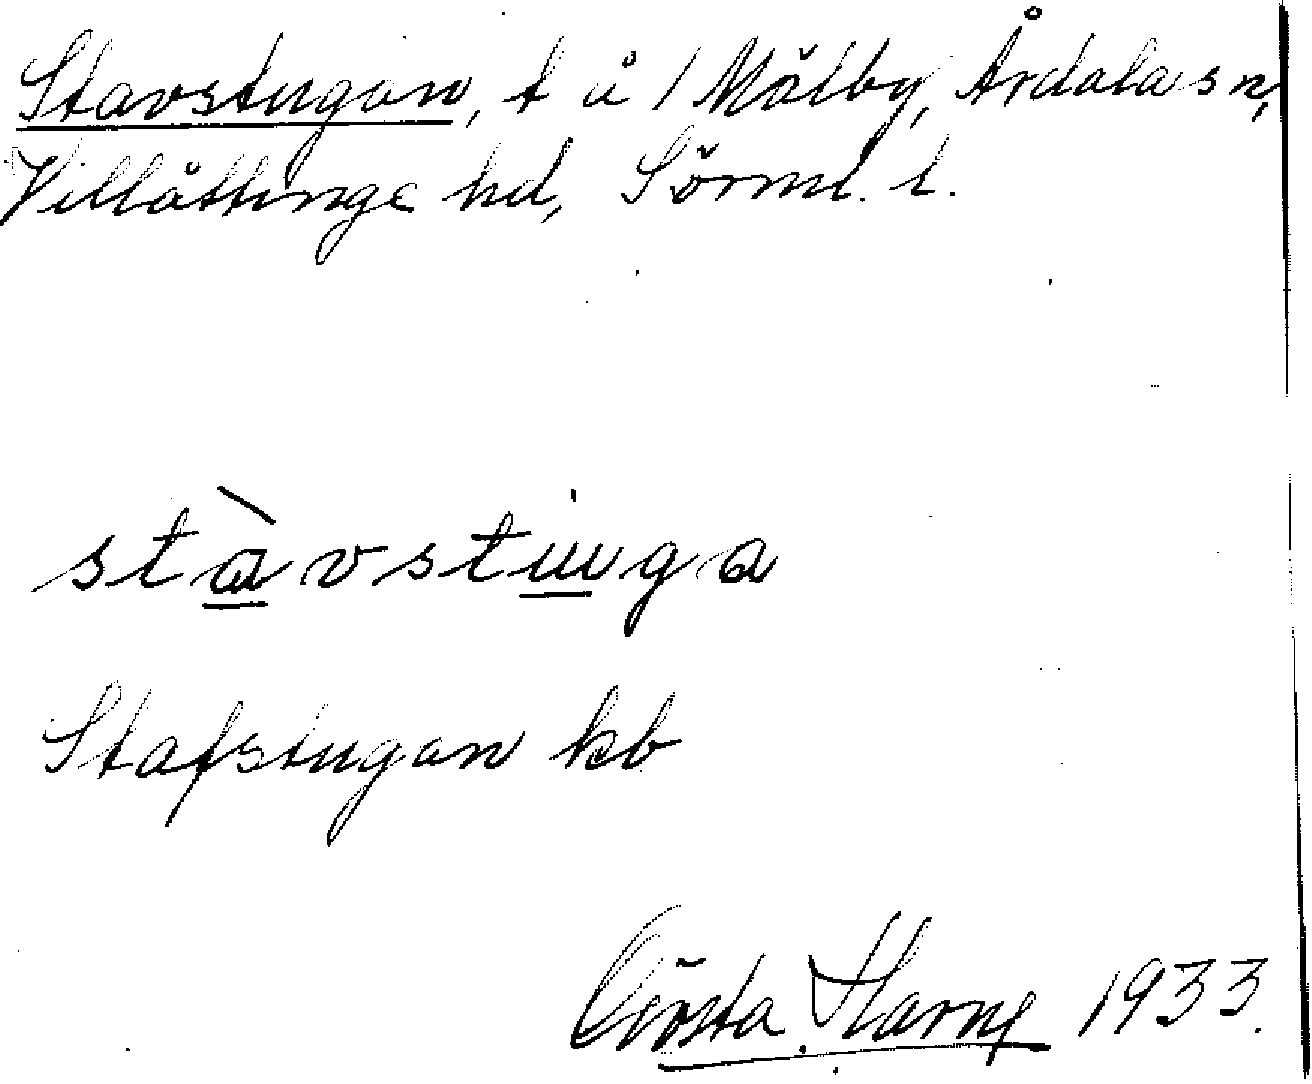 Stavstugan, t u / Mälby, Årdala sn,
Villåttinge hd, Sörml. l.
stàvstuga
Stafstugan kb
Gösta Harng 1933.